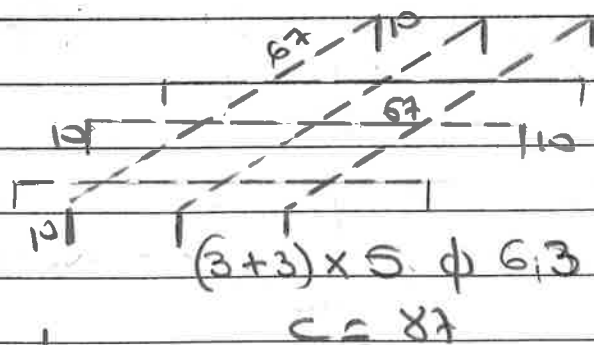 67 10
10 67 10
10
(3+3) x 5 φ 6,3
C = 87